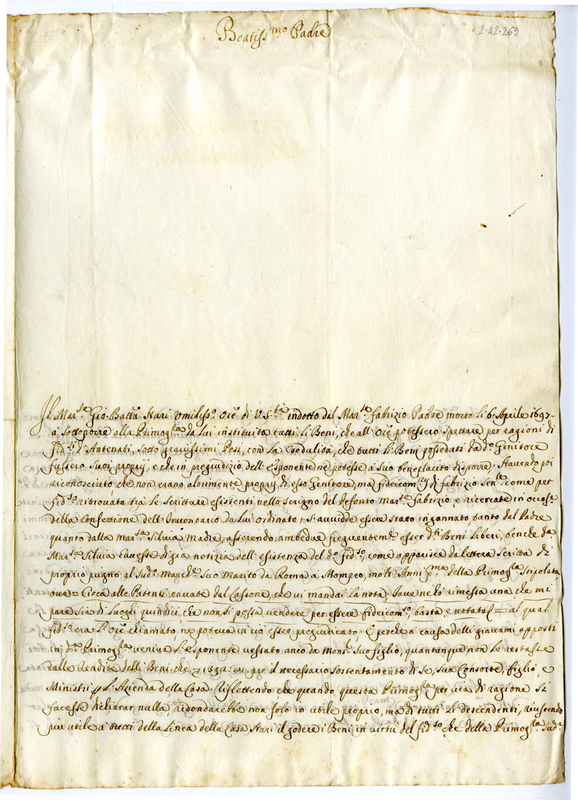 Beatiss.mo Padre
2-42-263
Il Mar.se Gio: Batta Stari Umiliss.o Ore di V. S.tà indotto dal Mar.se Fabrizio Padre morto li 6 Aprile 1697
a sottoporre alla Primog.ra da lui instituita tutti li Beni, che all'Ore potessero spettare per ragioni di
fid.i d'Antenati, sotto gravissimi Pesi, con la Credulità, che tutti li Beni posseduti da d.o Genitore
fussero suoi proprj, e che in pregiudizio dell'Esponente ne potesse a suo beneplacito disporre. Havendo poi
riconosciuto che non erano altrimente proprj di esso Genitore, ma fidecom.i di fabrizio Sen.re come per
fid.o ritrovato tra le Scritture esistenti nello Scrigno del defonto Mar.se Fabrizio, e ricercate in occas.e
della Confettione dell'Inventario da Lui ordinato, si avvidde essere stato ingannato tanto dal Padre
quanto dalla Mar.sa Silvia Madre, asserendo ambedue frequentem.te esser d.i Beni Liberi, benche da
Mar.sa Silvia havesse di già notizia dell'esistenza del d.o fid.o, come apparisce da lettera Scritta di
proprio pugno al Sud.o Mar.se suo Marito da Roma a Mompeo, molti Anni p.ma della Primog.ra stipolata
ove = Circa alle Patenti cavate dal Cassone, che vi mandai la nota, Sovene ho rimessa una che mi
pare sia di fuogli quindici che non si possa vendere per essere fidecom.o, basta è notato = al qual
fid.o era l'Ore chiamato, ne poteva in ciò essere pregiudicato. E perche a causa delli gravami apposti
in d.a Primog.ra veniva l'Esponente vessato anco da Mons. suo figlio, quantunque non le restasse
dalle Rendite delli Beni, che 1832: 01 per il necessario sostentamento di se, sua Consorte, figlio, e
Ministri p. l'Azienda della Casa. Riflettendo che quando questa Primog.ra per via di ragione si
facesse dichiarar nulla ridondarebbe non solo in utile proprio, ma di tutti li descendenti, riuscendo
più utile a tutti della Linea della Casa Stari il godere i Beni in virtù del fid.o che della Primog.ra Sud.a